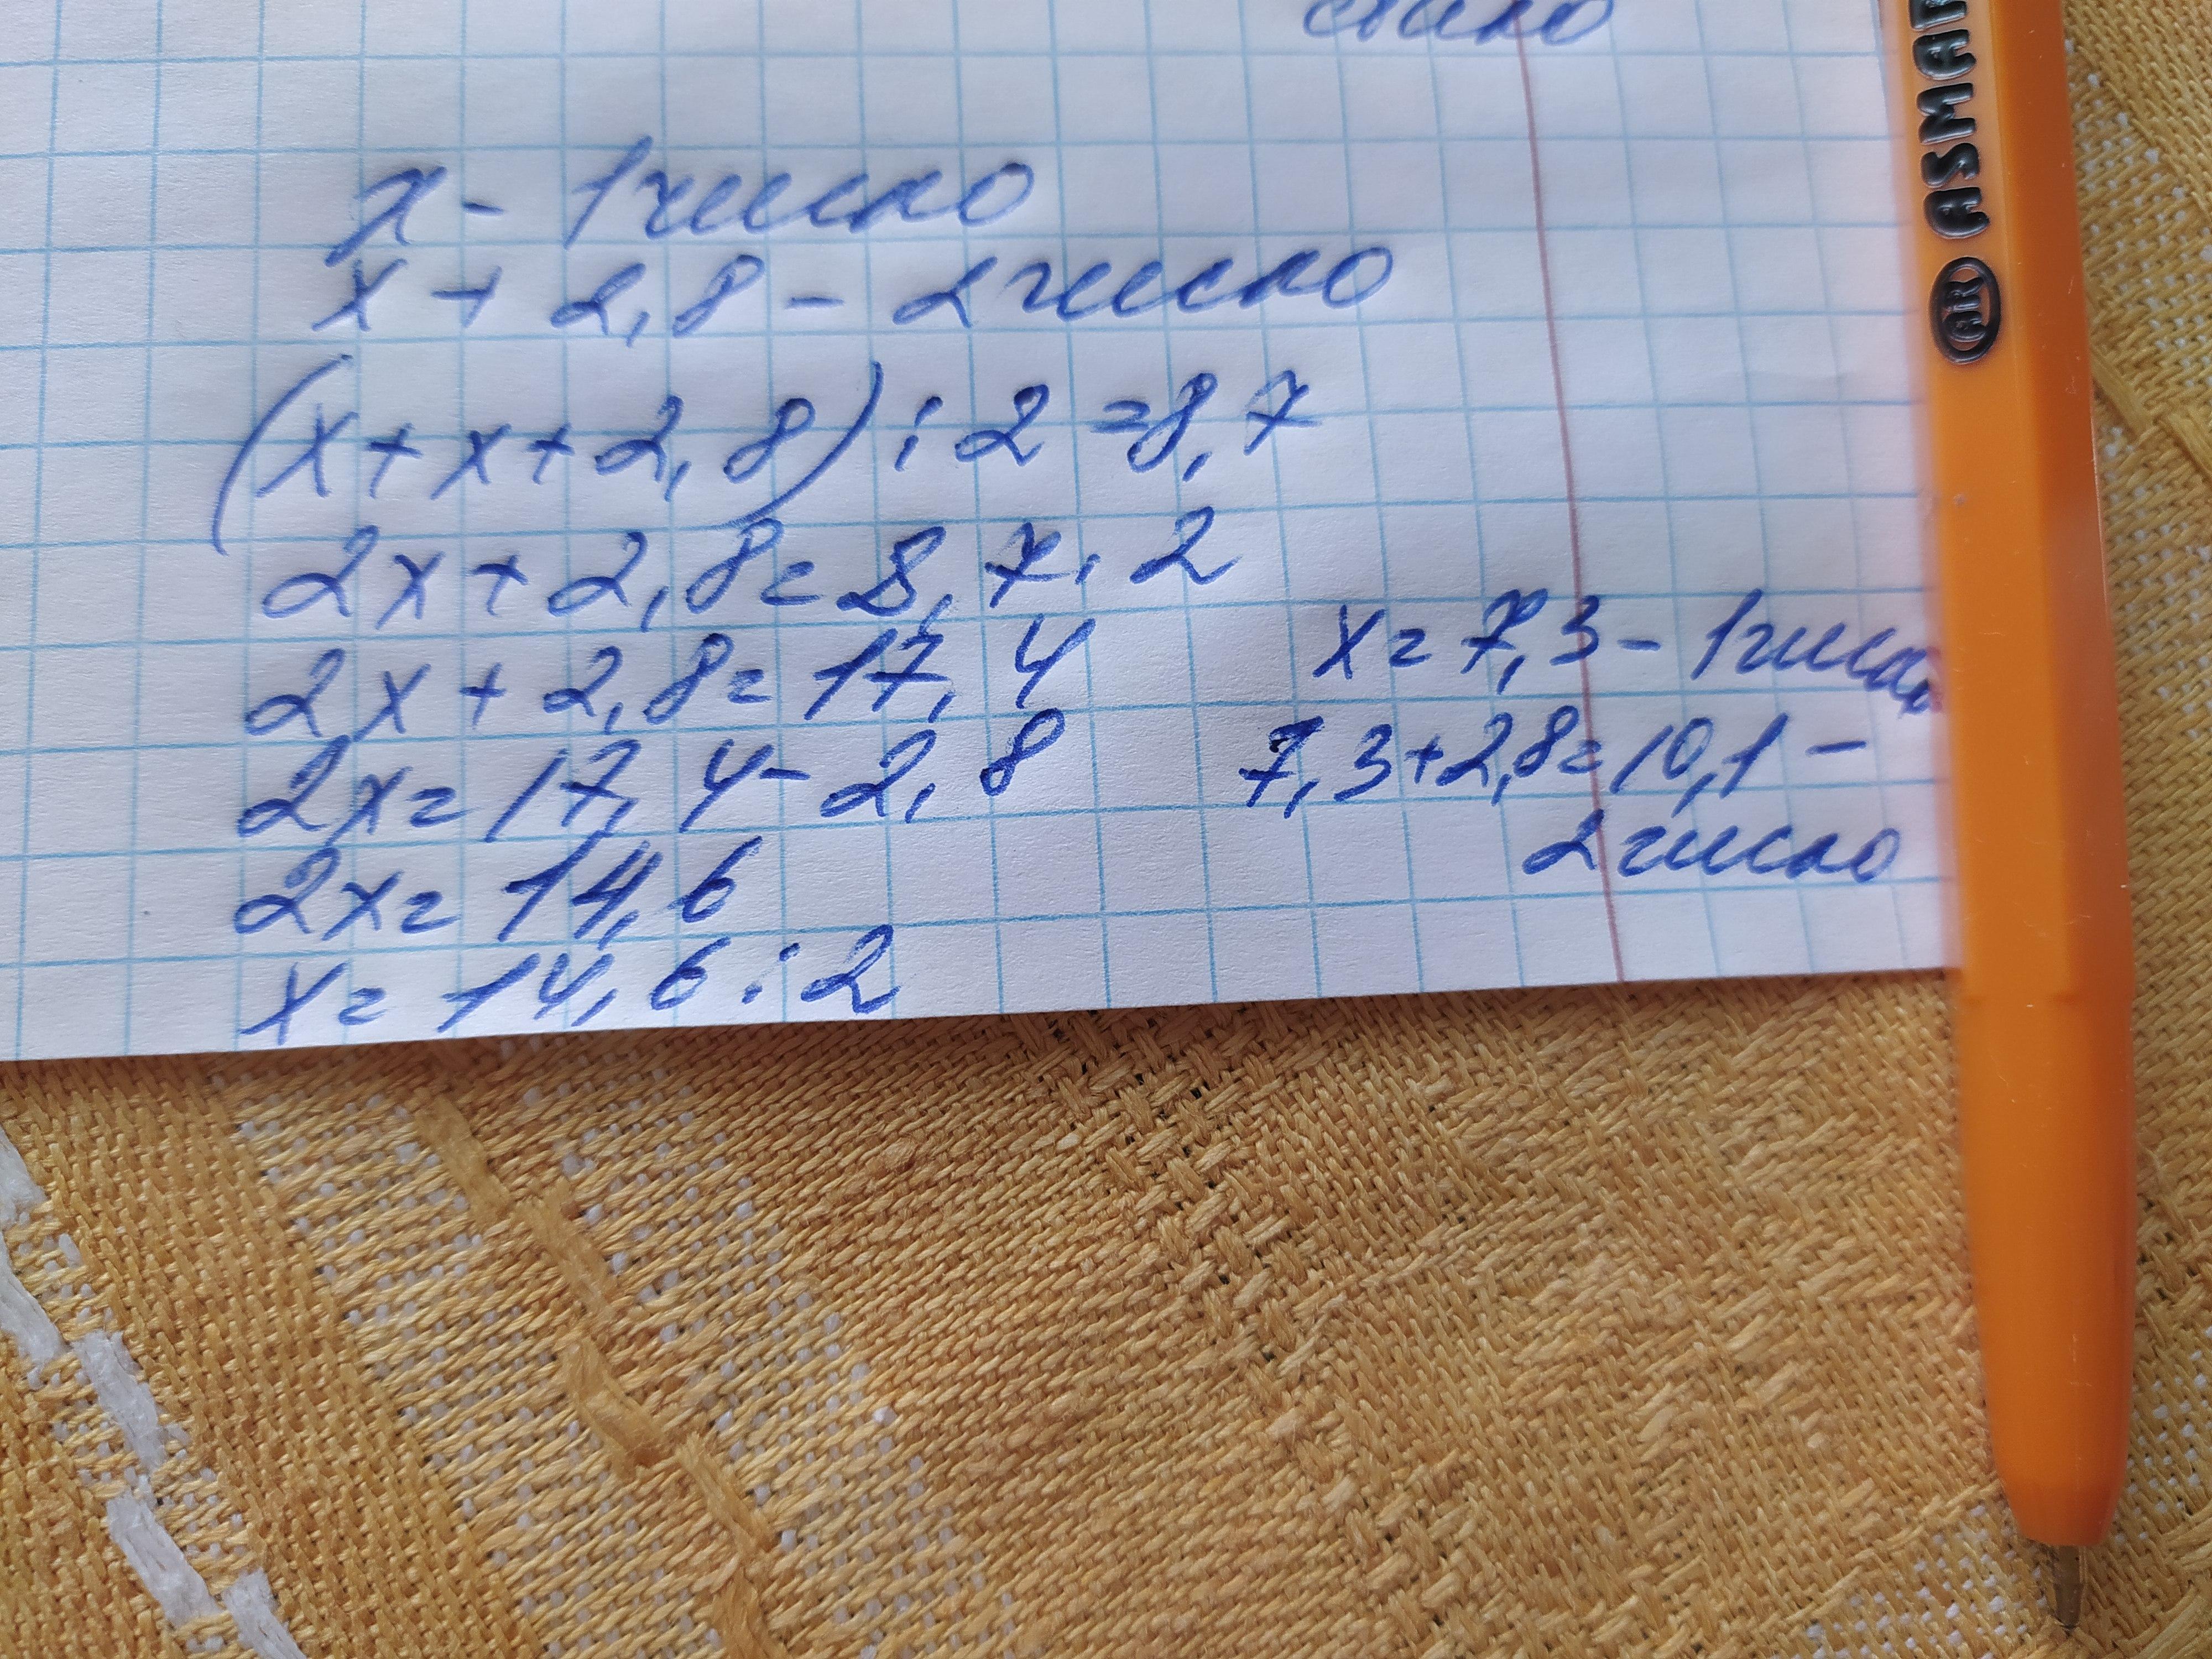 число
x - 1 число
x + 2,8 - 2 число
(x + x + 2,8) : 2 = 8,7
2x + 2,8 = 8,7 · 2
2x + 2,8 = 17,4
2x = 17,4 - 2,8
2x = 14,6
x = 14,6 : 2
x = 7,3 - 1 число
7,3 + 2,8 = 10,1 -
2 число
AR ASMAR